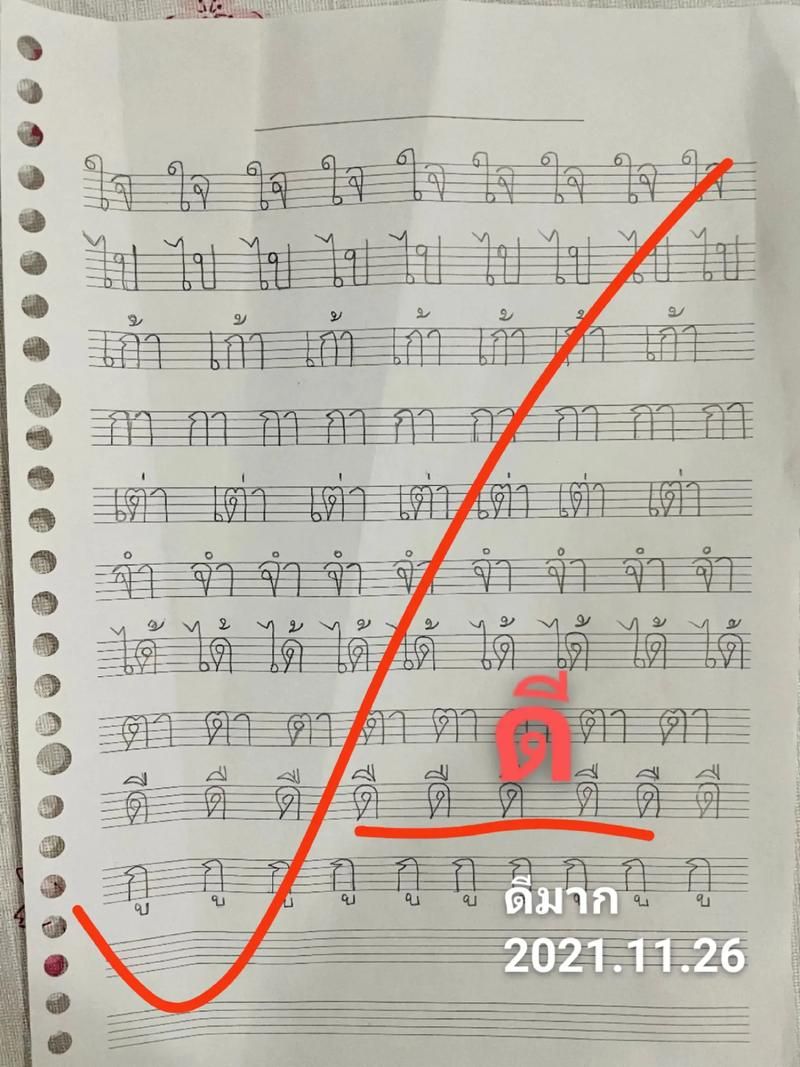 ใจ ใจ ใจ ใจ ใจ ใจ ใจ ใจ ใจ
ไป ไป ไป ไป ไป ไป ไป ไป ไป
เก้า เก้า เก้า เก้า เก้า เก้า เก้า
กา กา กา กา กา กา กา กา กา
เต่า เต่า เต่า เต่า เต่า เต่า เต่า
จำ จำ จำ จำ จำ จำ จำ จำ จำ
ได้ ได้ ได้ ได้ ได้ ได้ ได้ ได้ ได้
ตา ตา ตา ตา ตา ตา ตา
ดี
ดี ดี ดี ดี ดี ดี ดี ดี ดี
กู กู กู กู กู กู กู กู กู กู
ดีมาก
2021.11.26